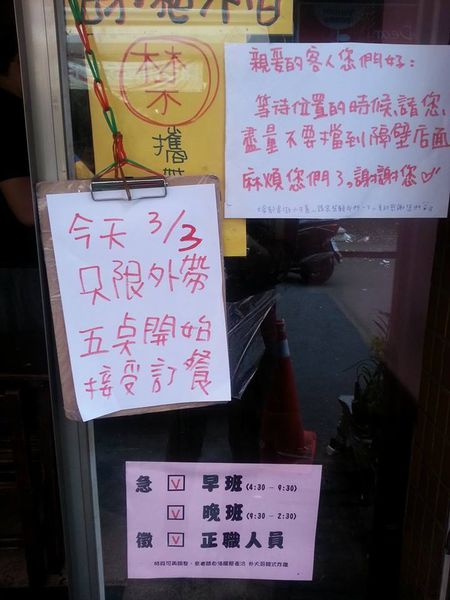 禁
攜帶
親愛的客人您們好：
等待位置的時候，請您
盡量不要擋到隔壁店面
麻煩您們了。謝謝您
今天 3/3
只限外帶
五桌開始
接受訂餐
急 ☑ 早班 (4:30 - 9:30)
☑ 晚班 (9:30 - 2:30)
徵 ☑ 正職人員